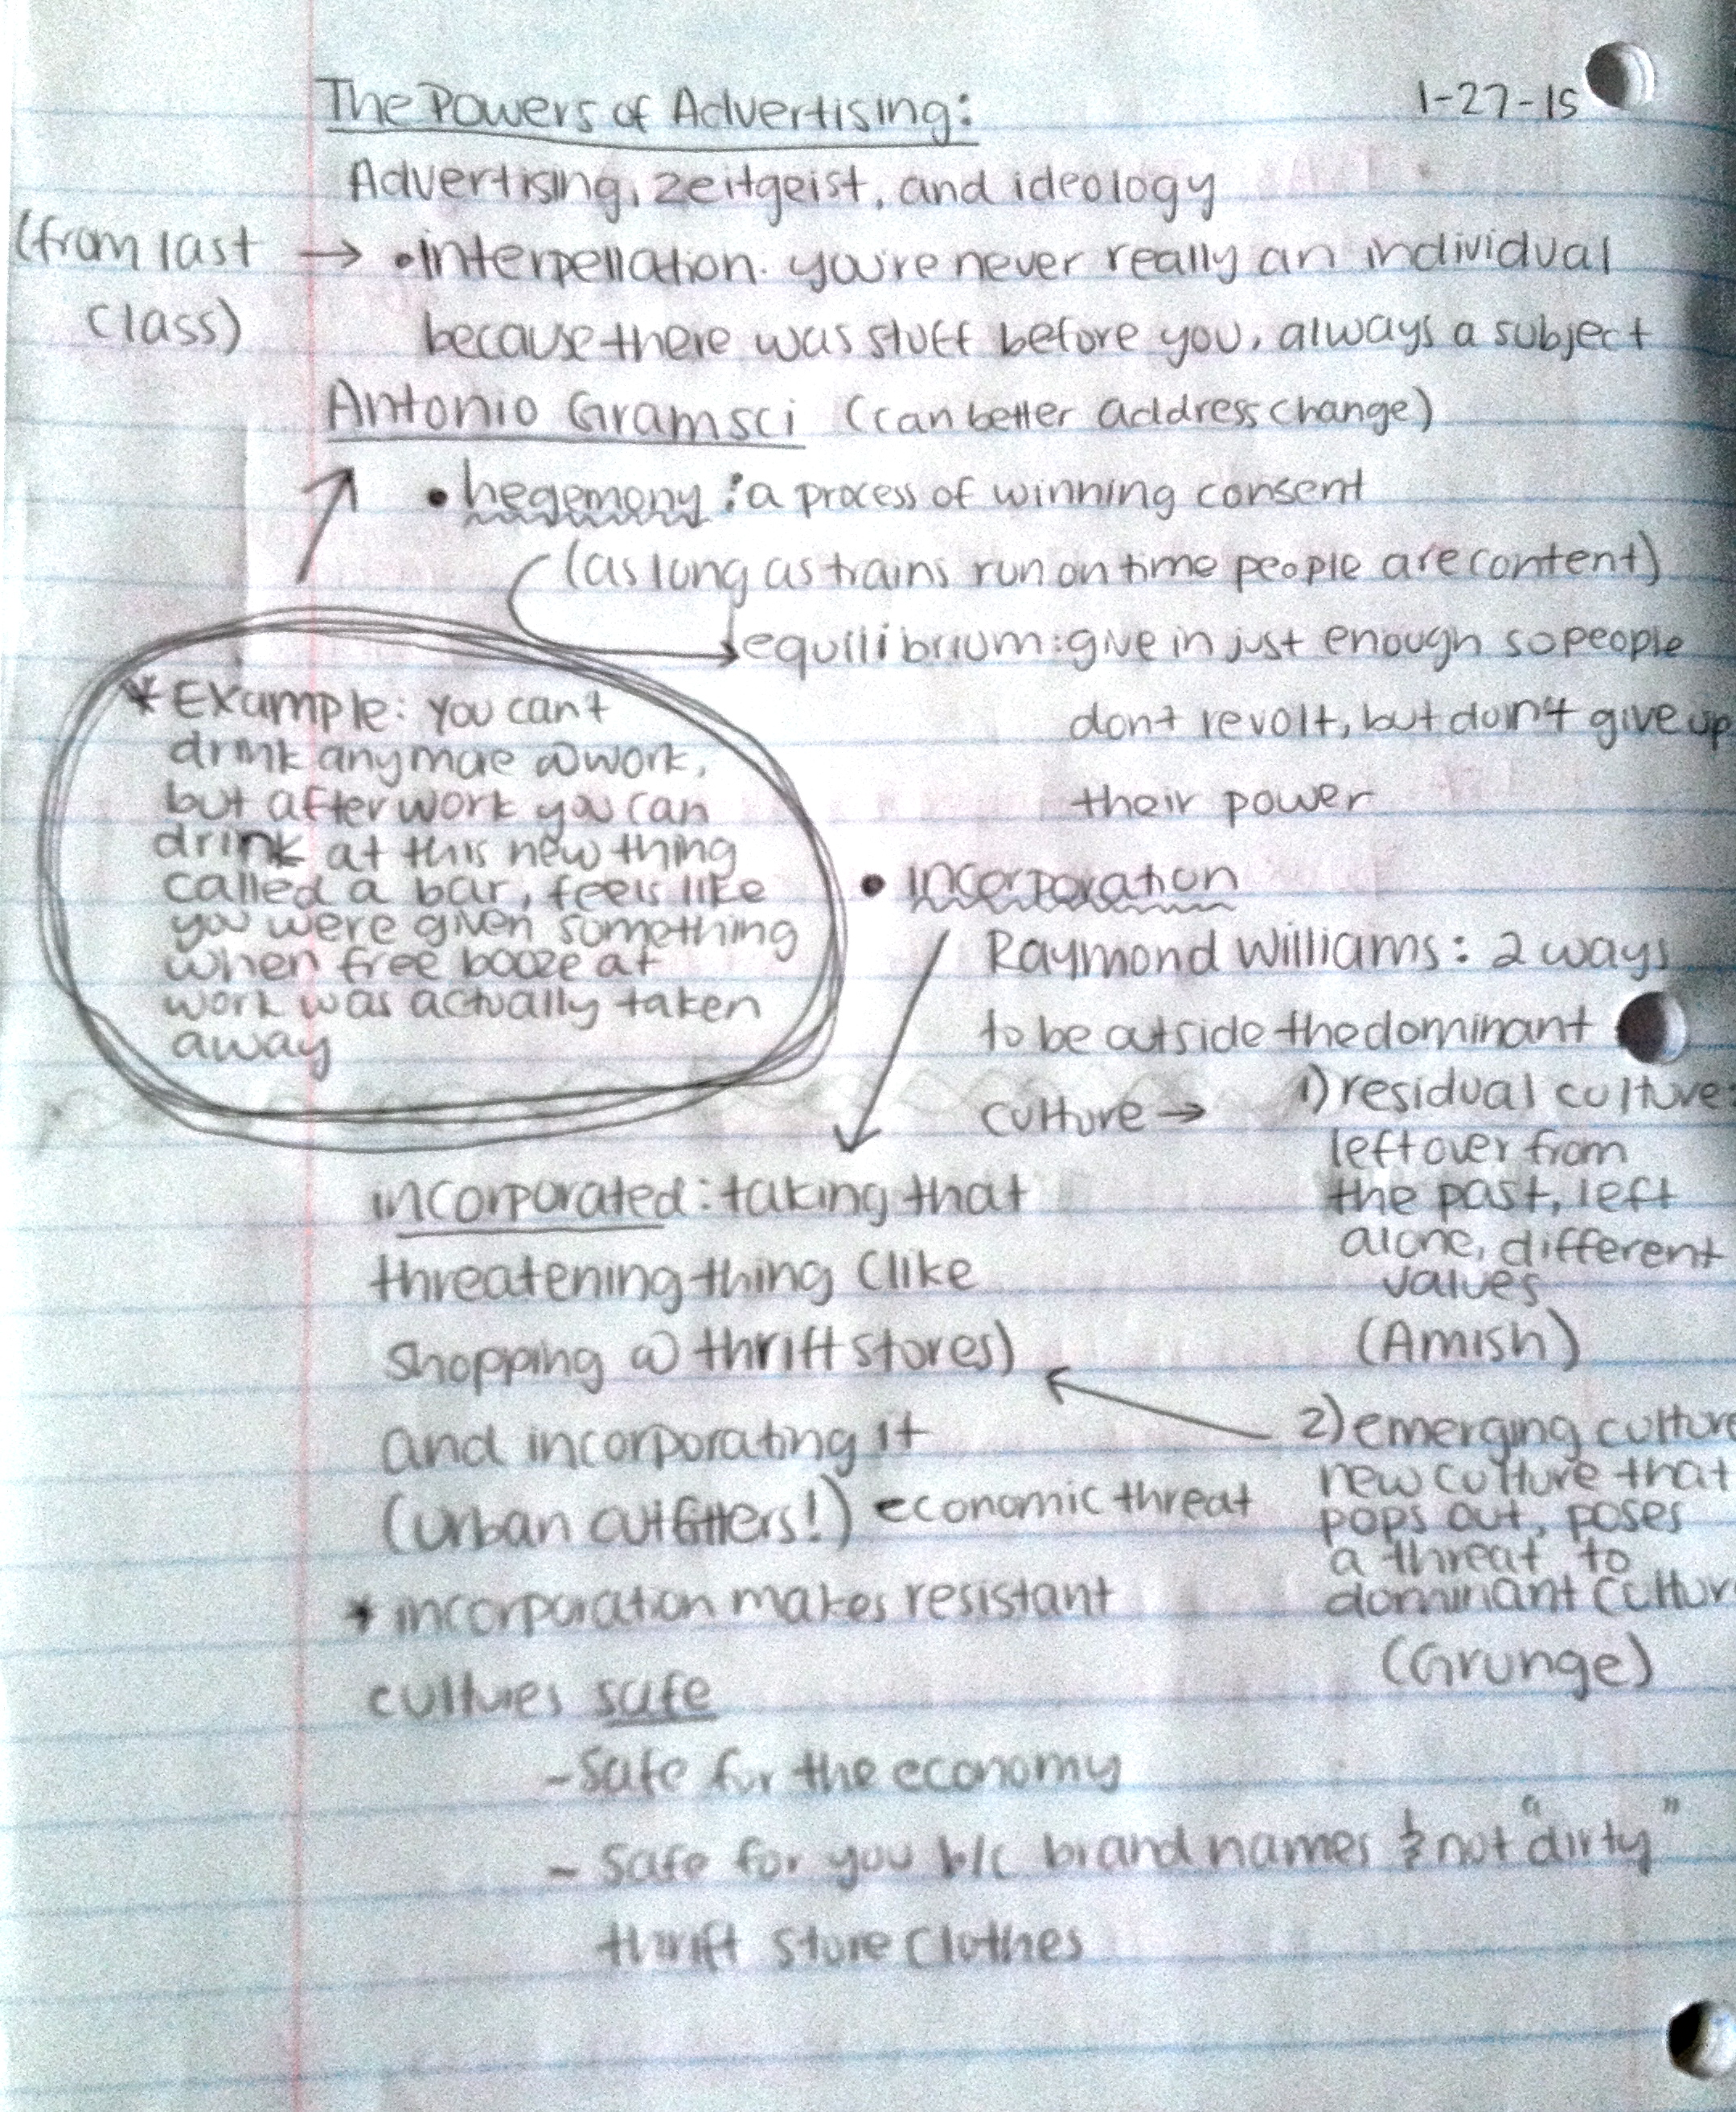 The Powers of Advertising:
1-27-15
Advertising, zeitgeist, and ideology
(from last
class)
→ •interpellation. you're never really an individual
because there was stuff before you, always a subject
Antonio Gramsci (can better address change)
• hegemony: a process of winning consent
(as long as trains run on time people are content)
equilibrium: give in just enough so people
don't revolt, but don't give up
their power
* Example: You can't
drink anymore @ work,
but after work you can
drink at this new thing
called a bar, feels like
you were given something
when free booze at
work was actually taken
away
• incorporation
Raymond Williams: 2 ways
to be outside the dominant
culture →
1) residual culture
left over from
the past, left
alone, different
values
(Amish)
2) emerging culture
new culture that
pops out, poses
a threat to
dominant cultur
(Grunge)
incorporated: taking that
threatening thing (like
shopping @ thrift stores)
and incorporating it
(urban outfitters!) economic threat
* incorporation makes resistant
cultures safe
- safe for the economy
- safe for you b/c brand names & not "dirty"
thrift store clothes